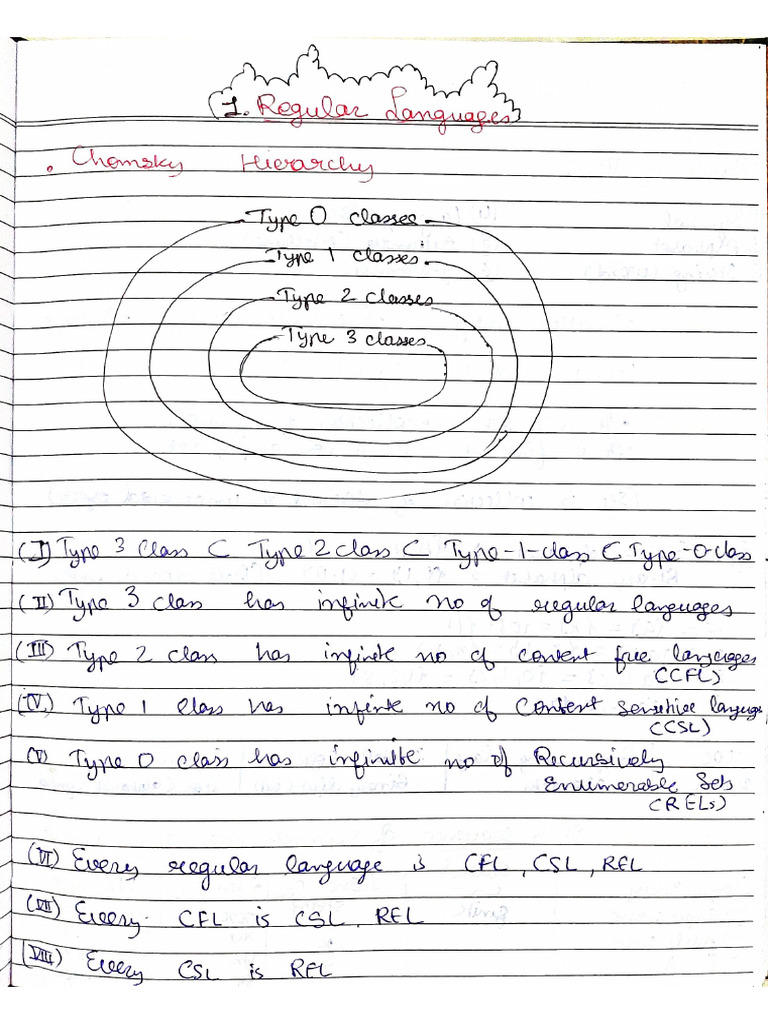 1. Regular Languages
. Chomsky Hierarchy
Type 0 classes
Type 1 classes
Type 2 classes
Type 3 classes
(I) Type 3 Class ⊂ Type 2 class ⊂ Type-1-class ⊂ Type-0-class
(II) Type 3 class has infinite no of regular languages
(III) Type 2 class has infinite no of context free languages
(CFL)
(IV) Type 1 class has infinite no of Context Sensitive languages
(CSL)
(V) Type 0 class has infinite no of Recursively
Enumerable Sets
(RELs)
(VI) Every regular language is CFL, CSL, REL
(VII) Every CFL is CSL, REL
(VIII) Every CSL is REL